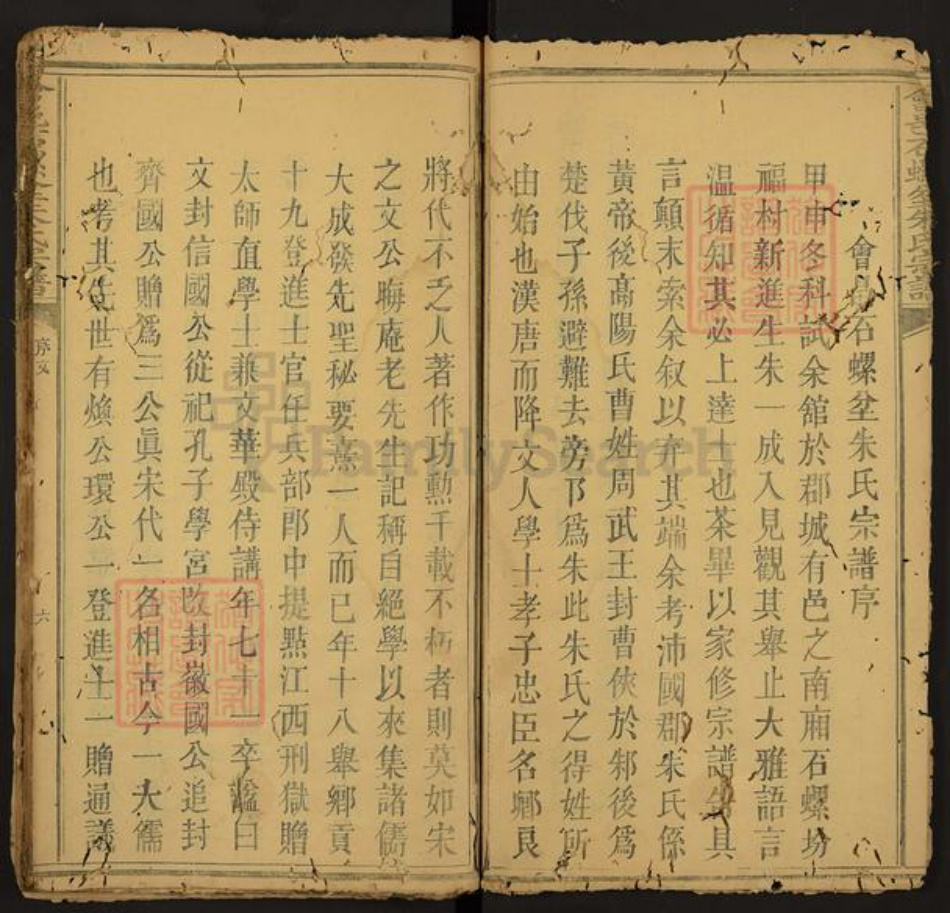 會昌石螺坌朱氏宗譜序
甲申冬科試余舘於郡城有邑之南廂石螺坋
福村新進生朱一成入見觀其舉止大雅語言
温循知其必上達士也茶畢以家修宗譜告具
言顛末索余叙以弁其端余考沛國郡朱氏係
黃帝後高陽氏曹姓周武王封曹俠於邾後爲
楚伐子孫避難去旁阝爲朱此朱氏之得姓所
由始也漢唐而降文人學士孝子忠臣名鄉良
將代不乏人著作功勳千載不朽者則莫如宋
之文公晦庵老先生記稱自絕學以來集諸儒
大成發先聖秘要熹一人而已年十八舉鄉貢
十九登進士官任兵部郎中提點江西刑獄贈
太師直學士兼文華殿侍講年七十一卒諡曰
文封信國公從祀孔子學宮改封徽國公追封
齊國公贈爲三公眞宋代一名相古今一大儒
也考其先世有煥公環公一登進士一贈通議
會邑石螺坌朱氏宗譜
序文
六
FamilySearch